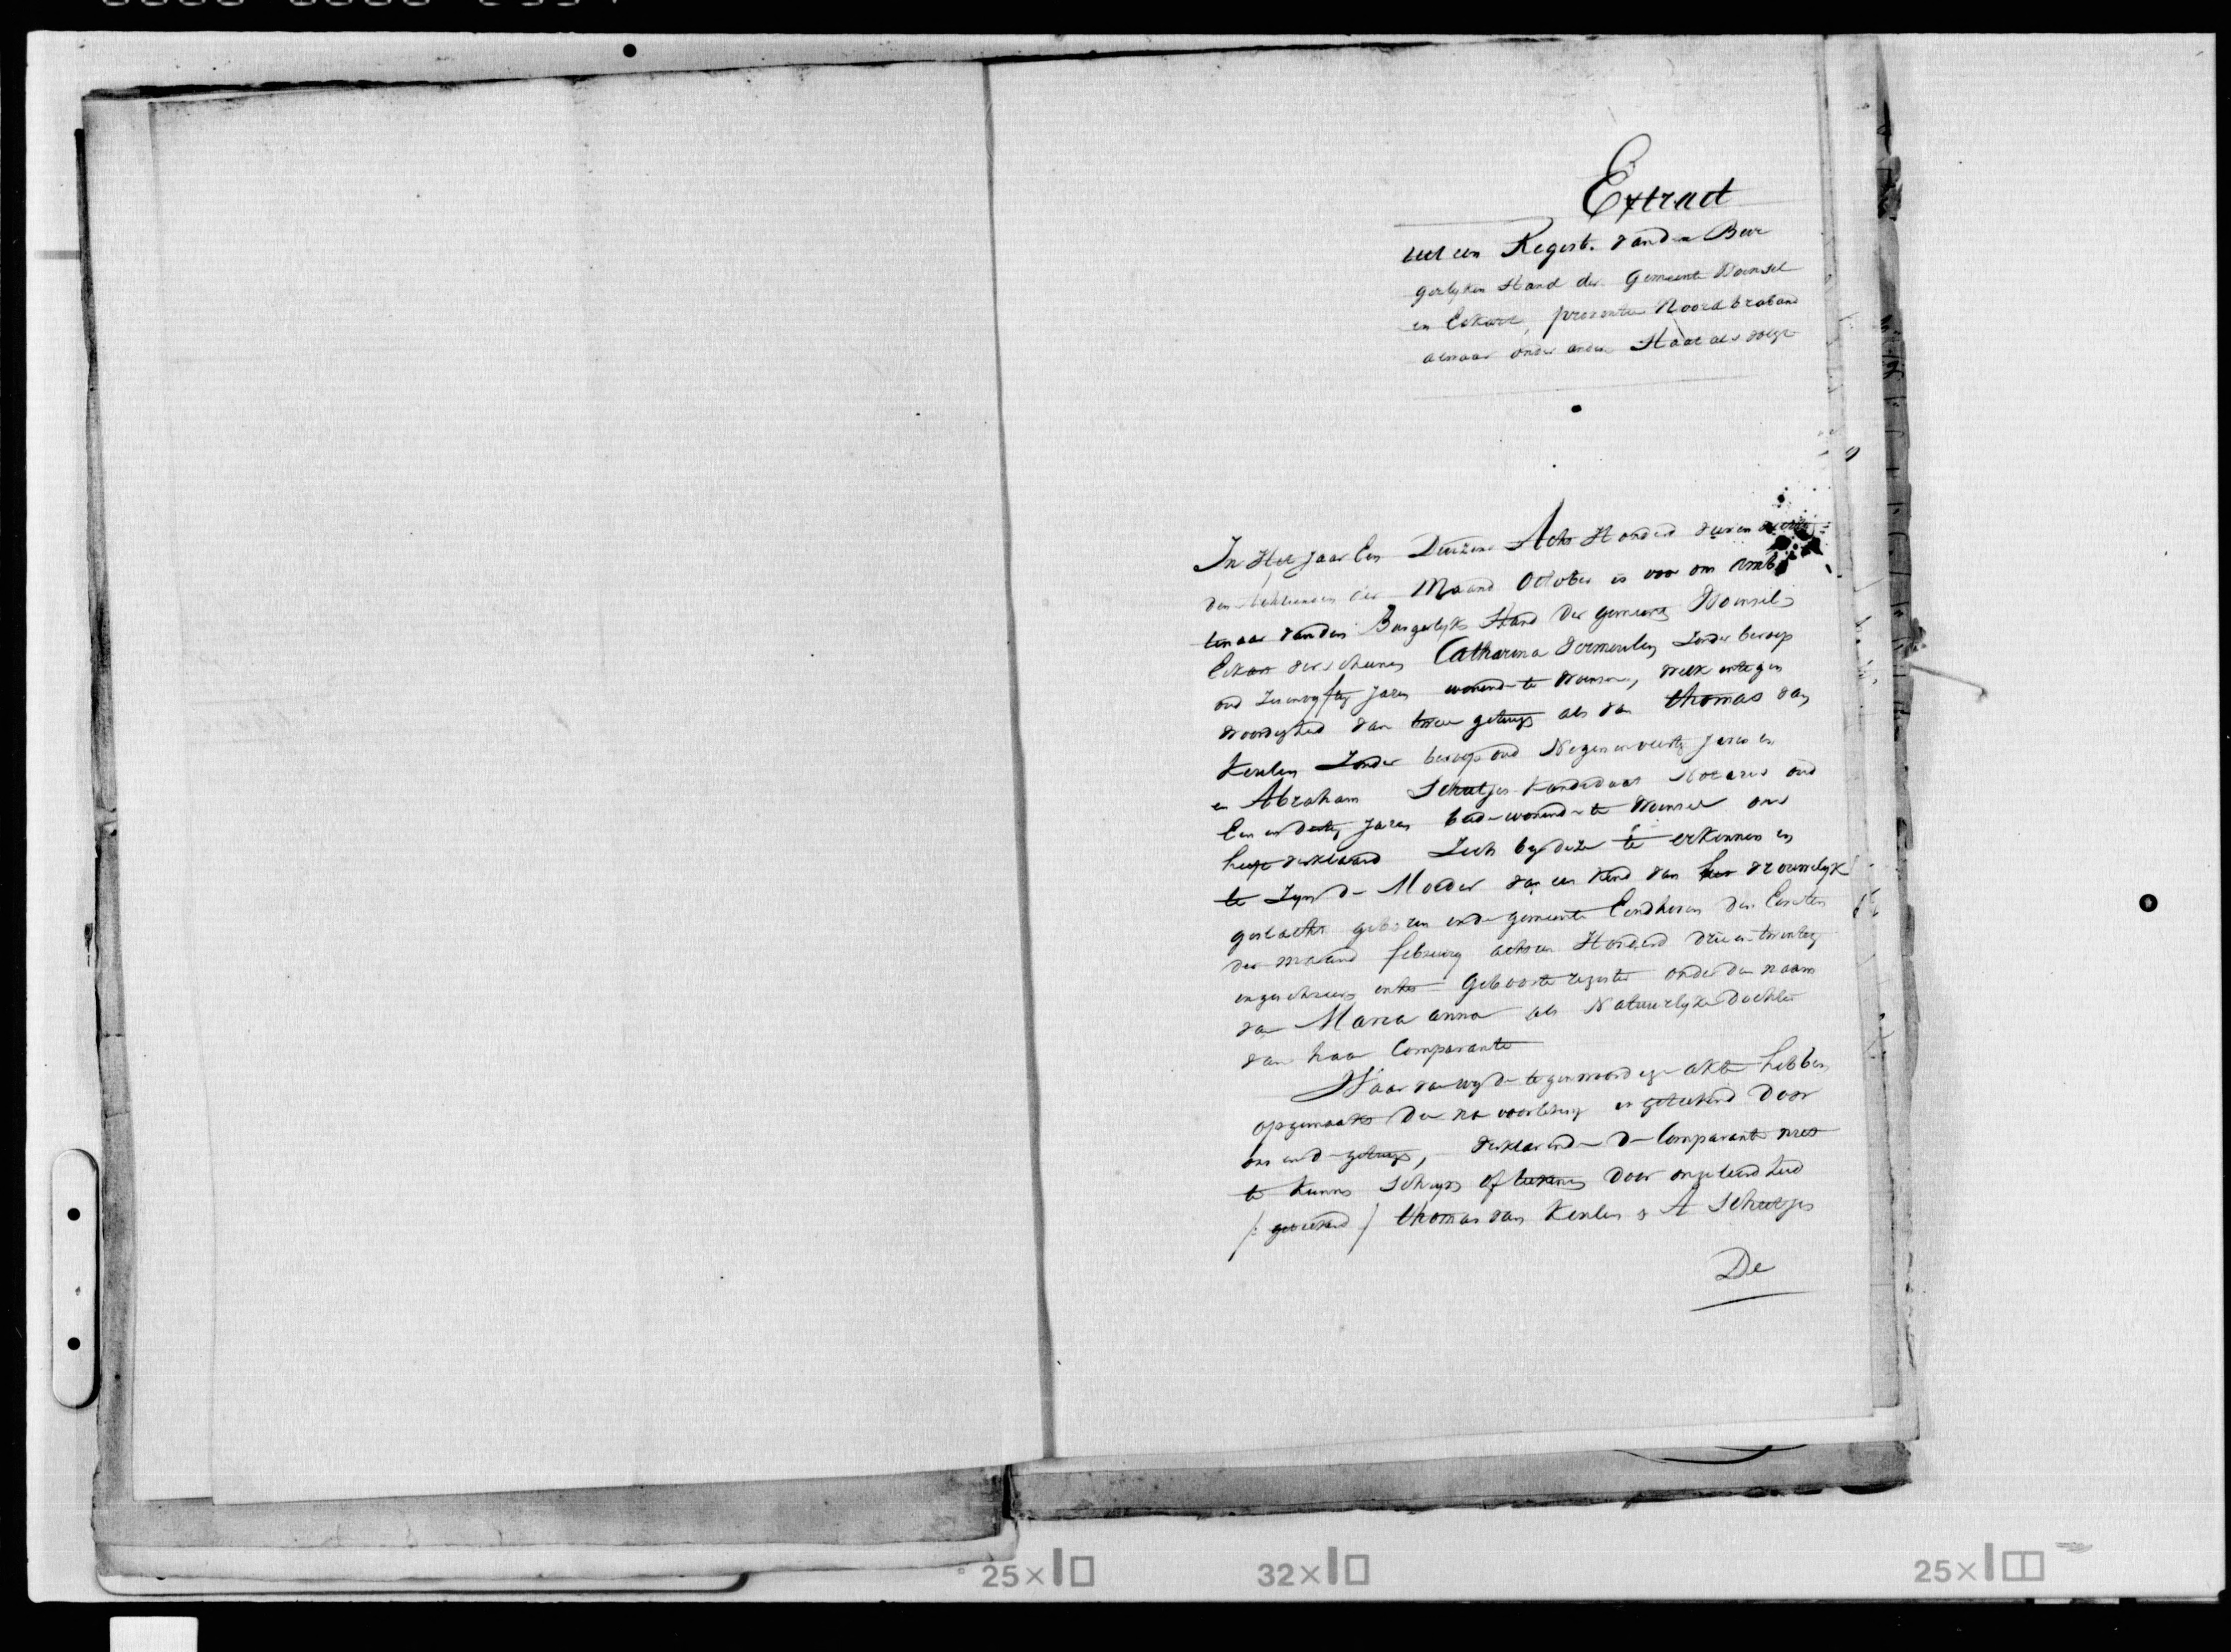 Extract
uit een Regist. van den Bur
gerlyken Stand der Gemeente Woensel
en Eckart, provintie Noordbraband
alwaar onder andere Staat als volgt
In Het Jaar Een Duizend Acht Honderd
den Achttienden der Maand October is voor ons Ambt
tenaar van den Burgerlyke Stand der gemeente Woensel
Eckart verscheenen Catharina Vermeulen zonder beroep
oud jaren wonende te Woensel, welk in tegen
woordigheid van twee getuigen als van thomas van
Keulen Zonder beroep oud Negen en veertig Jaren en
en Abraham Schutjes Kandidaat Notaris oud
Een en dertig jaren beide wonende te Woensel ons
heeft verklaard Zich by deze te erkennen en
te Zyn de Moeder van een Kind van het vrouwelyk
geslacht geboren in de gemeente Eindhoven den Eersten
der maand february achtien Honderd drie en twintig
ingeschreven in het Geboorte register onder den naam
van Maria anna als Natuurlyke Dochter
van haar Comparante
Waar van wy de tegenwoordige akte hebben
opgemaakt Die na voorlezing is geteekend Door
ons en de getuigen, verklarende de Comparante niet
te Kunnen schryven of teekenen Door ongeleerdheid
/: geteekend / thomas van Keulen & A Schutjes
De
25×1
32×1
25×1